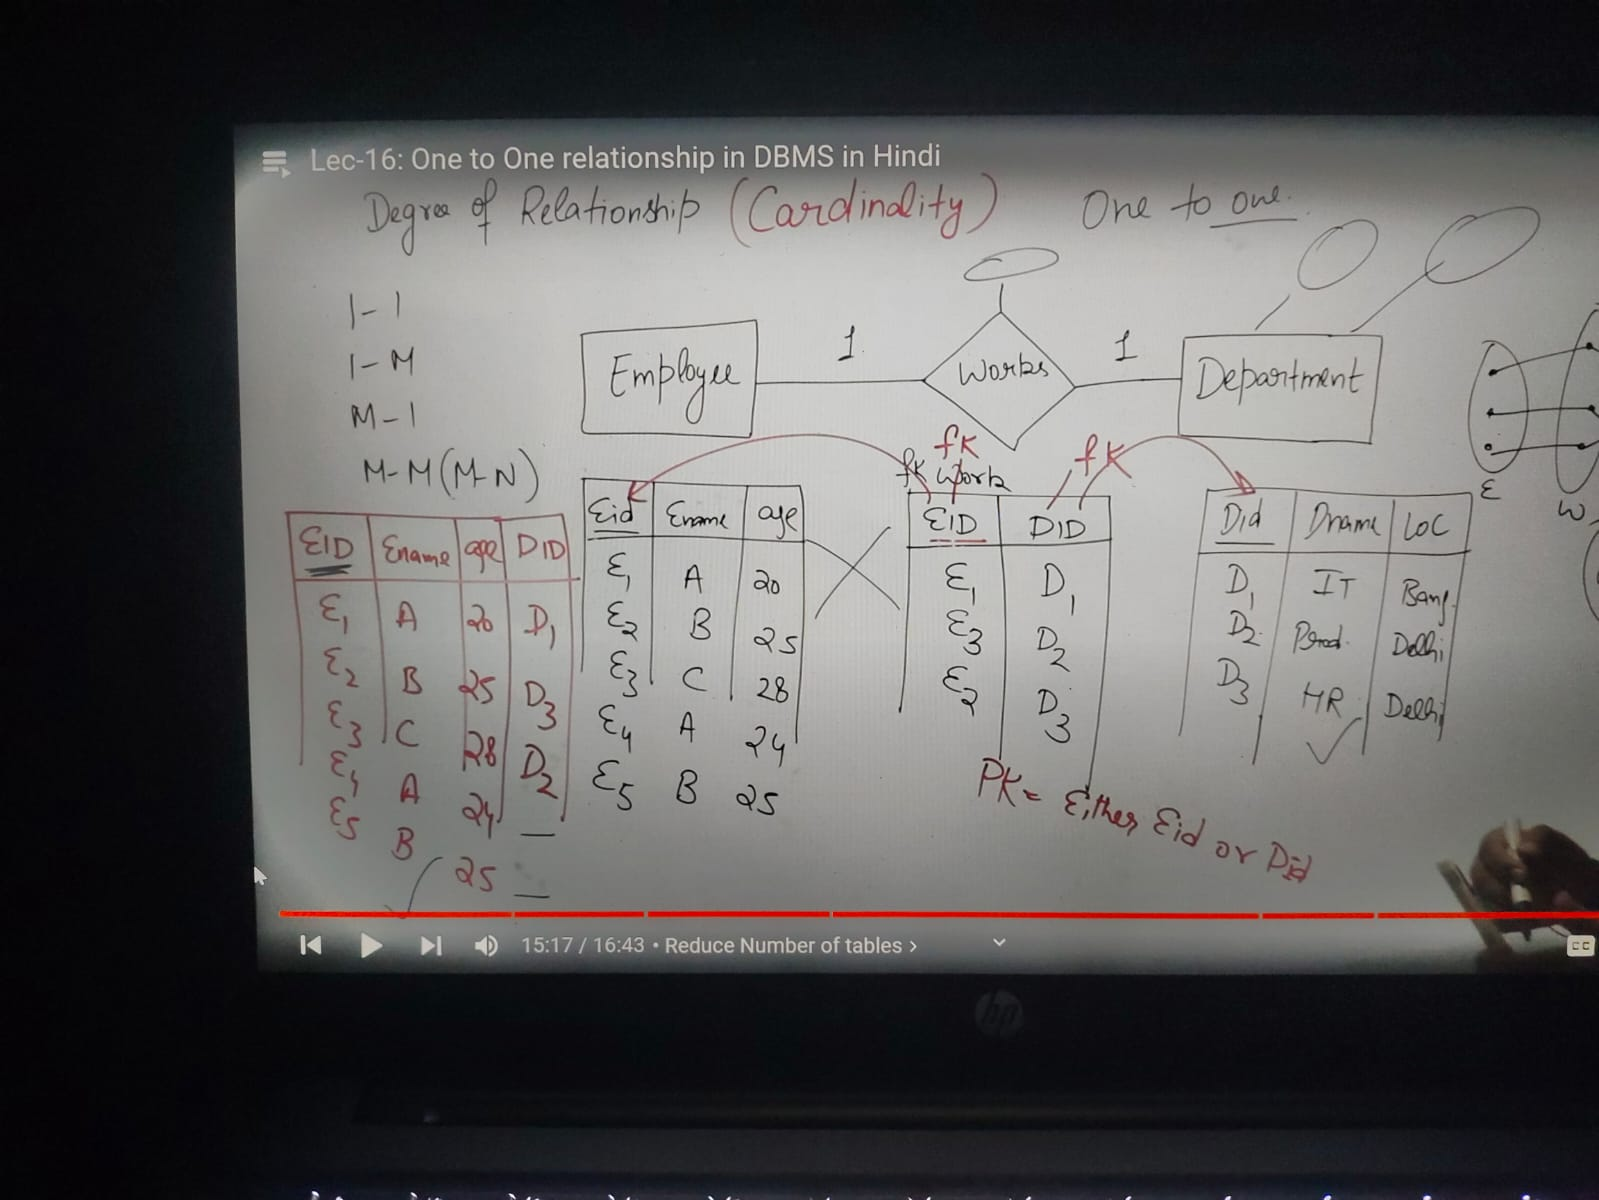 Lec-16: One to One relationship in DBMS in Hindi
Degree of Relationship (Cardinality) One to one.
1-1
1-M
M-1
M-M (M-N)
Employee 1 Works 1 Department
fk
fk Work fk
E
W
EID Ename age DID
E1 A 20 D1
E2 B 25 D3
E3 C 28 D2
E4 A 24 —
E5 B 25 —
Eid Ename age
E1 A 20
E2 B 25
E3 C 28
E4 A 24
E5 B 25
EID DID
E1 D1
E3 D2
E2 D3
Did Dname Loc
D1 IT Bang.
D2 Prod. Delhi
D3 HR Delhi
PK = Either Eid or Did
15:17 / 16:43 • Reduce Number of tables >
CC
hp